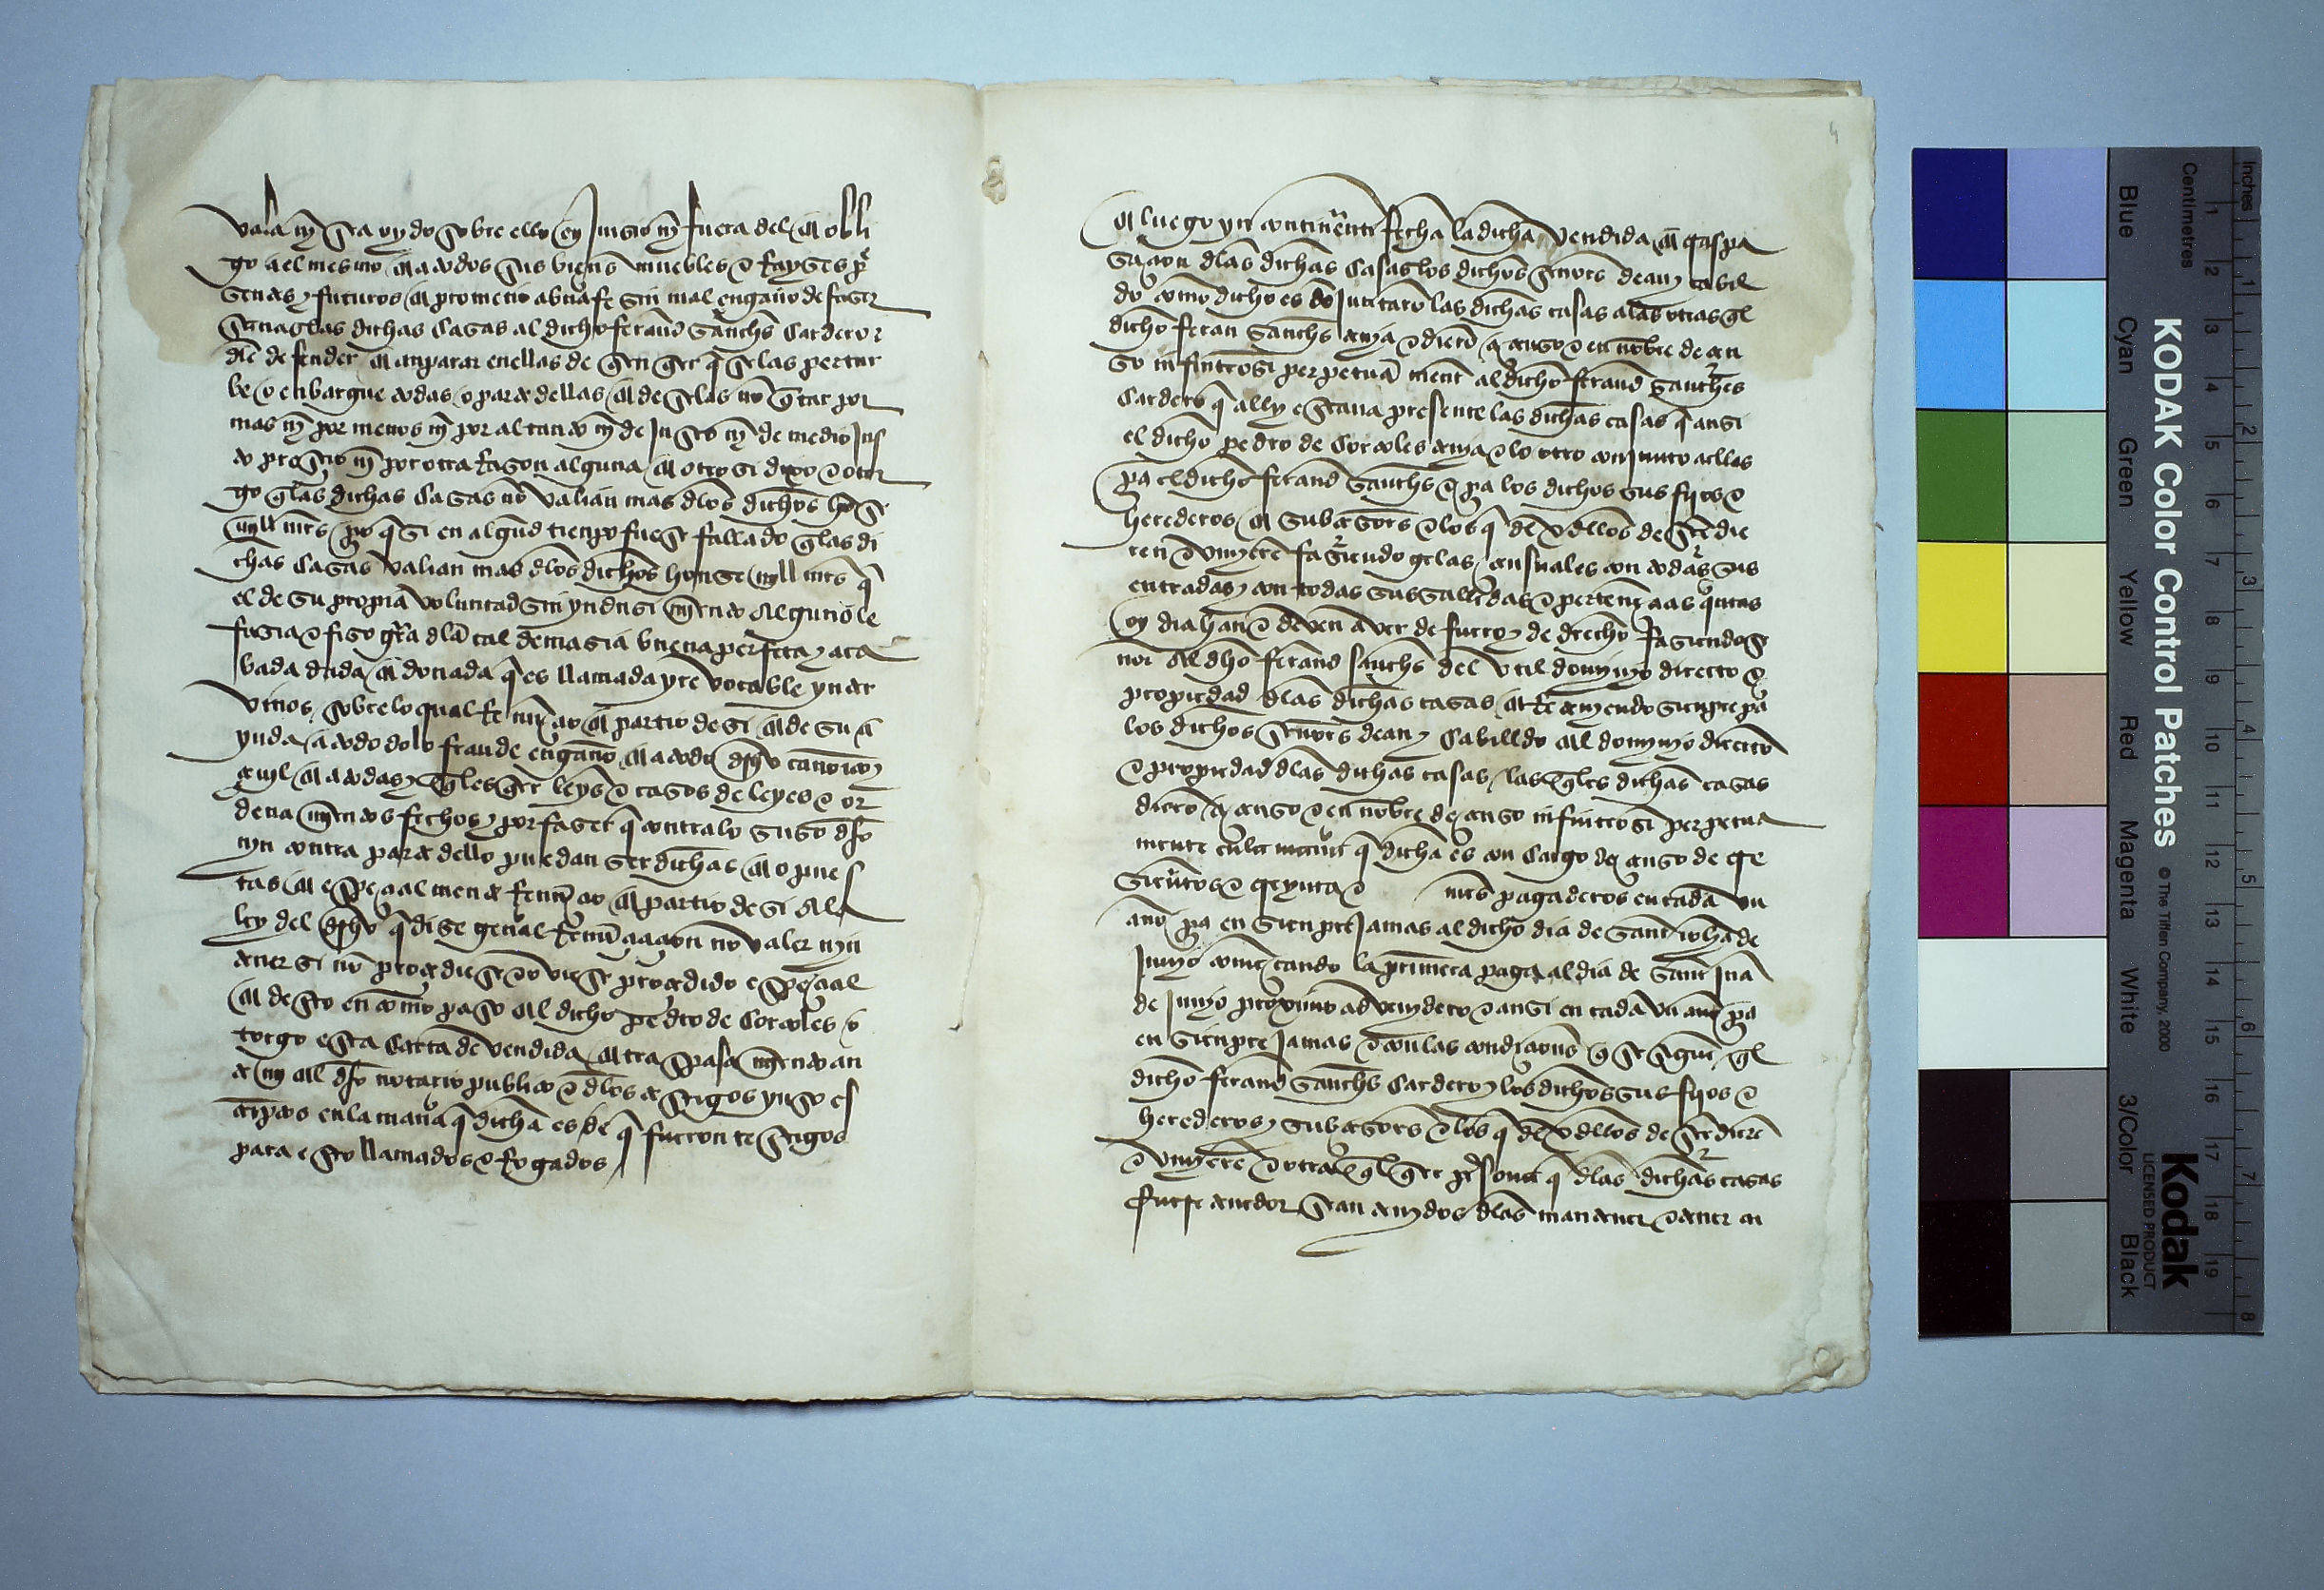 vala nj sea oydo sobre ello en Juisio nj fuera del E obli
go a el mesmo E a todos sus bienes muebles e Rayses pre
sentes y futuros E prometio a buena fe sin mal engaño de faser
sanas las dichas casas al dicho ferand sanchs Cardero e
de defender E anparar en ellas de quien quier q se las pertur
be o enbargue todas o parte dellas E de se las no quitar por
mas nj por menos nj por al tanto nj de Justo nj de medio Jus
to prescio nj por otra Rason alguna E otrosi dixo e otor
go q las dichas Casas no valian mas dlos dichos honse
mjll mrs pero q si en algund tienpo fuese fallado q las di
chas Casas valian mas dlos dichos honse mjll mrs q
el de su propia voluntad sin yndusimjento alguno le
fasia e fiso gra dla tal demasia buena perfecta y aca
bada dada E donada q es llamada yrevocable ynter
vivos sobre lo qual Renunçio E partio de si E de su a
yuda a todo dolo fraude engaño E a todo drcho canonico y
çivil E a todas y quales quier leys e casos de leyes e or
denamjentos fechos y por faser q contra lo suso dicho
nyn contra parte dello puedan ser dichas E opues
tas E espeçialmente Renunçio E partio de si Ala
ley del drcho q dise general Renunçiaçion no valer nyn
tener si no proçediese o oviese proçedido espeçial
E desto en como paso Al dicho pedro de Corcoles o
torgo esta Carta de vendida E traspasamjento an
te mj Al dicho notario publico e dlos testigos yuso es
criptos en la manera q dicha es de q fueron testigos
para esto llamados e Rogados
E luego yn continente fecha la dicha vendida E traspa
saçion dlas dichas Casas los dichos señores dean y cabil
do como dicho es do Juntaron las dichas casas a las otras ql
dicho feran sanchs tenja e dieron a çenso e en nonbre de çen
so infinteosi perpetua mente al dicho ferand sanches
Cardero q ally estava presente las dichas casas q ansi
el dicho pedro de Corcoles tenja e lo otro conJunto a ellas
pa el dicho ferand sanchs e pa los dichos sus fijos e
herederos E subçesores e los q del e dellos desçendie
ren e vinyeren fasiendogelas çensuales con todas sus
entradas y con todas sus sallidas e pertenençias quantas
oy dia han e deven aver de fecho y de drecho fasiendo se
nor Al dho ferand sanchs del vtil domjnyo directo e
propiedad dlas dichas casas E Retenjendo sienpre pa
los dichos señores dean y Cabilldo Al domjnyo directo
e propiedad dlas dichas casas las quales dichas casas
dieron a çenso e en nonbre de çenso infinteosi perpetua
mente en la manera q dicha es con Cargo de çenso de tre
sientos e treynta e mrs pagaderos en cada vn
ano pa en sienpre Jamas al dicho dia de sant iohan de
Junyo començando la primera paga al dia de sant Juan
de Junyo proximo advenydero e ansi en cada vn ano pa
en sienpre Jamas e con las condiçiones q se siguen ql
dicho ferand sanchs Cardero y los dichos sus fijos e
herederos y subçesores e los q del e dellos desçendieren
e vinyeren e otra qual quier persona q dlas dichas casas
fuere tenedor sean tenydos dlas mantener e tener en